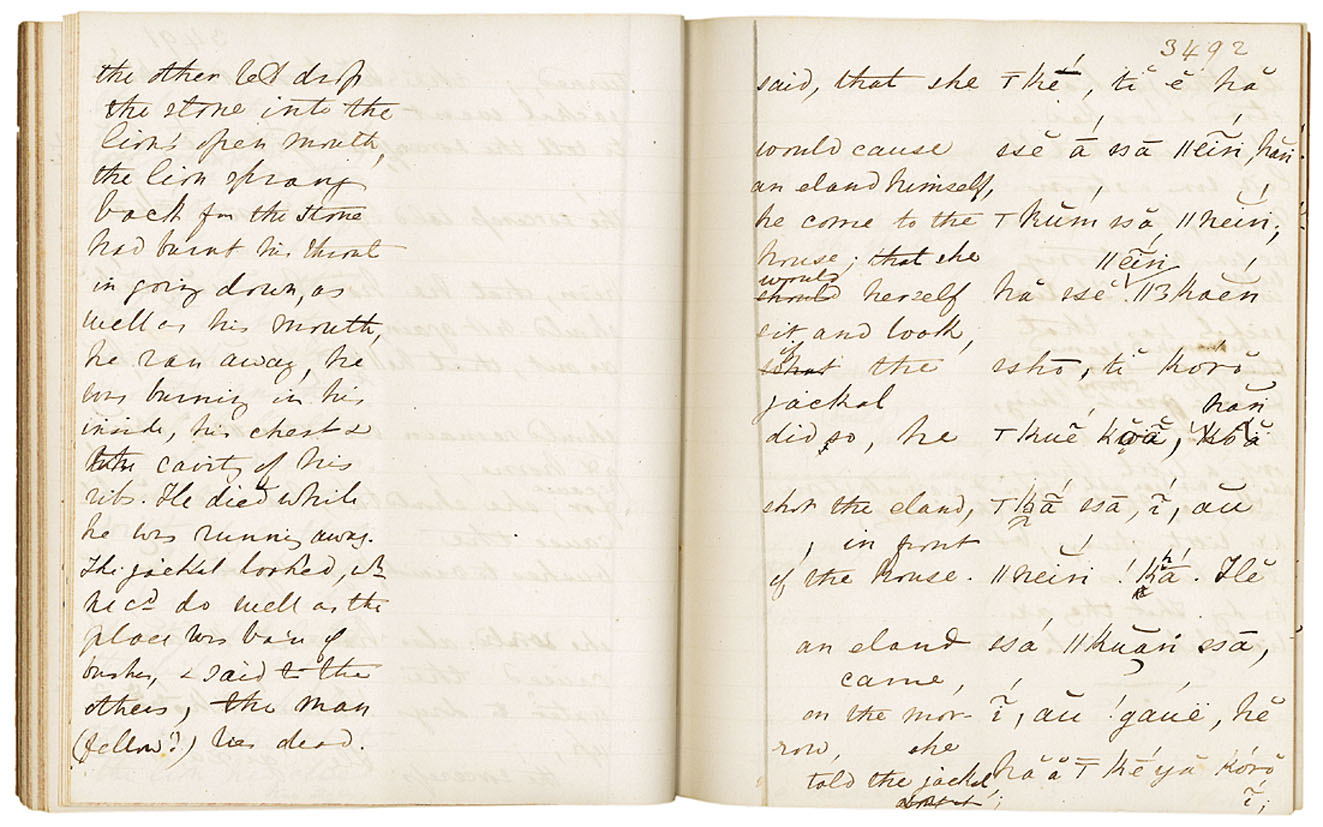 the other let drop
the stone into the
lion's open mouth,
the lion sprang
back for the stone
had burnt his throat
in going down, as
well as his mouth,
he ran away, he
was burning in his
inside, his chest &
cavity of his
ribs. He died while
he was running away.
The jackal looked, as
he cd do well as the
place was bare of
bushes, & said to the
others, the man
(fellow?) lies dead.
3492
said, that she ⊤kĕ́, tĭ ĕ hă
would cause ssĕ ā́ ssā ǁẽĩń, hăń
an eland himself,
he come to the ⊤kŭḿ ssă ǁneiń;
house; that she ǁẽĩń
would
should herself hă ssĕ ǁ3kăĕń
sit and look,
if
what the ssho, tĭ kórŏ
jackal hăń
did so, he ⊤kuĕ́ kŏā,
shot the eland, ssā, ĩ́, āū
, in front
of the house. ǁneiń !k'ā́. Hĕ
an eland ssā́ ǁkŭăń ssā,
came,
on the mor- ĩ́, āū !gáuĕ, hĕ
row, she
told the jackal, hă ă ⊤kĕ́yă kórŏ
about it; ĩ́;